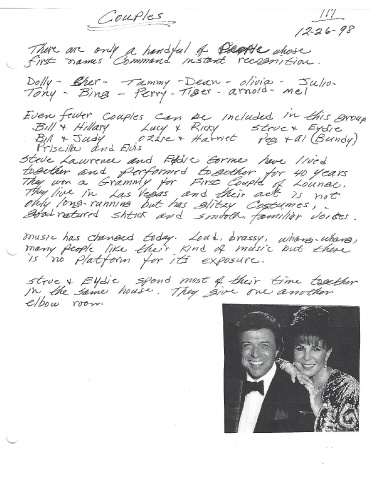 Couples
111
12-26-98
There are only a handful of People whose
first names Command instant recognition.
Dolly - Cher - Tammy - Dean - Olivia - Julio -
Tony - Bing - Perry - Tiger - arnold - mel
Even fewer Couples can be included in this group
Bill & Hillary Lucy & Ricky Steve & Eydie
Bill & Judy Ozzie & Harriet Peg & al (Bundy)
Priscilla and Elvis
Steve Lawrence and Eydie Gorme have lived
together and performed together for 40 years
They won a Grammy for First Couple of Lounge.
They live in Las Vegas and their act is not
only long-running but has glitzy Costumes,
good natured shtick and smooth, familiar voices.
music has changed today. Loud, brassy, whang-whang,
many people like their kind of music but there
is no Platform for its exposure.
Steve & Eydie spend most of their time together
in the same house. They give one another
elbow room.